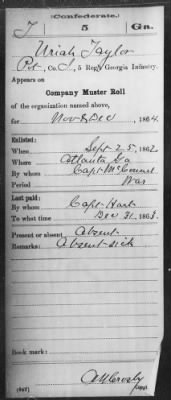 (Confederate.)
T 5 Ga.
Uriah Taylor
Pvt, Co. I, 5 Reg't Georgia Infantry.
Appears on
Company Muster Roll
of the organization named above,
for Nov & Dec, 1864.
Enlisted:
When Sept 25, 1862
Where Atlanta Ga
By whom Capt McConnel
Period War
Last paid:
By whom Capt Hart
To what time Dec 31, 1863.
Present or absent Absent
Remarks: Absent-sick
Book mark:
(642) A M Crosby
Copyist.